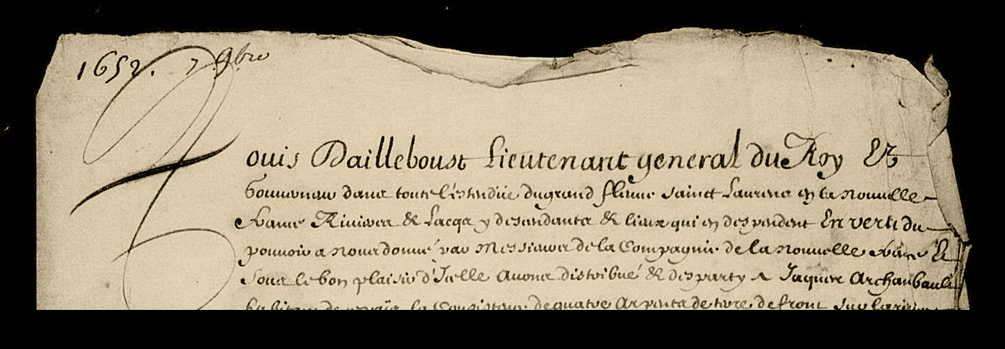 1652. 7 9bre
Louis Dailleboust Lieutenant general du Roy &
Gouverneur dans toute l'estendüe du grand fleuve sainct Laurens en la nouvelle
France Rivieres & Lacqs y descendants & lieux qui en despendent En vertu du
pouvoir a nous donné par Messieurs de la Compagnie de la nouvelle France &
Soubs le bon plaisir d'Icelle Avons distribué & desparty a Jaques Archanbault
habitant de la Consistence de quatre Arpents de terre de front sur la